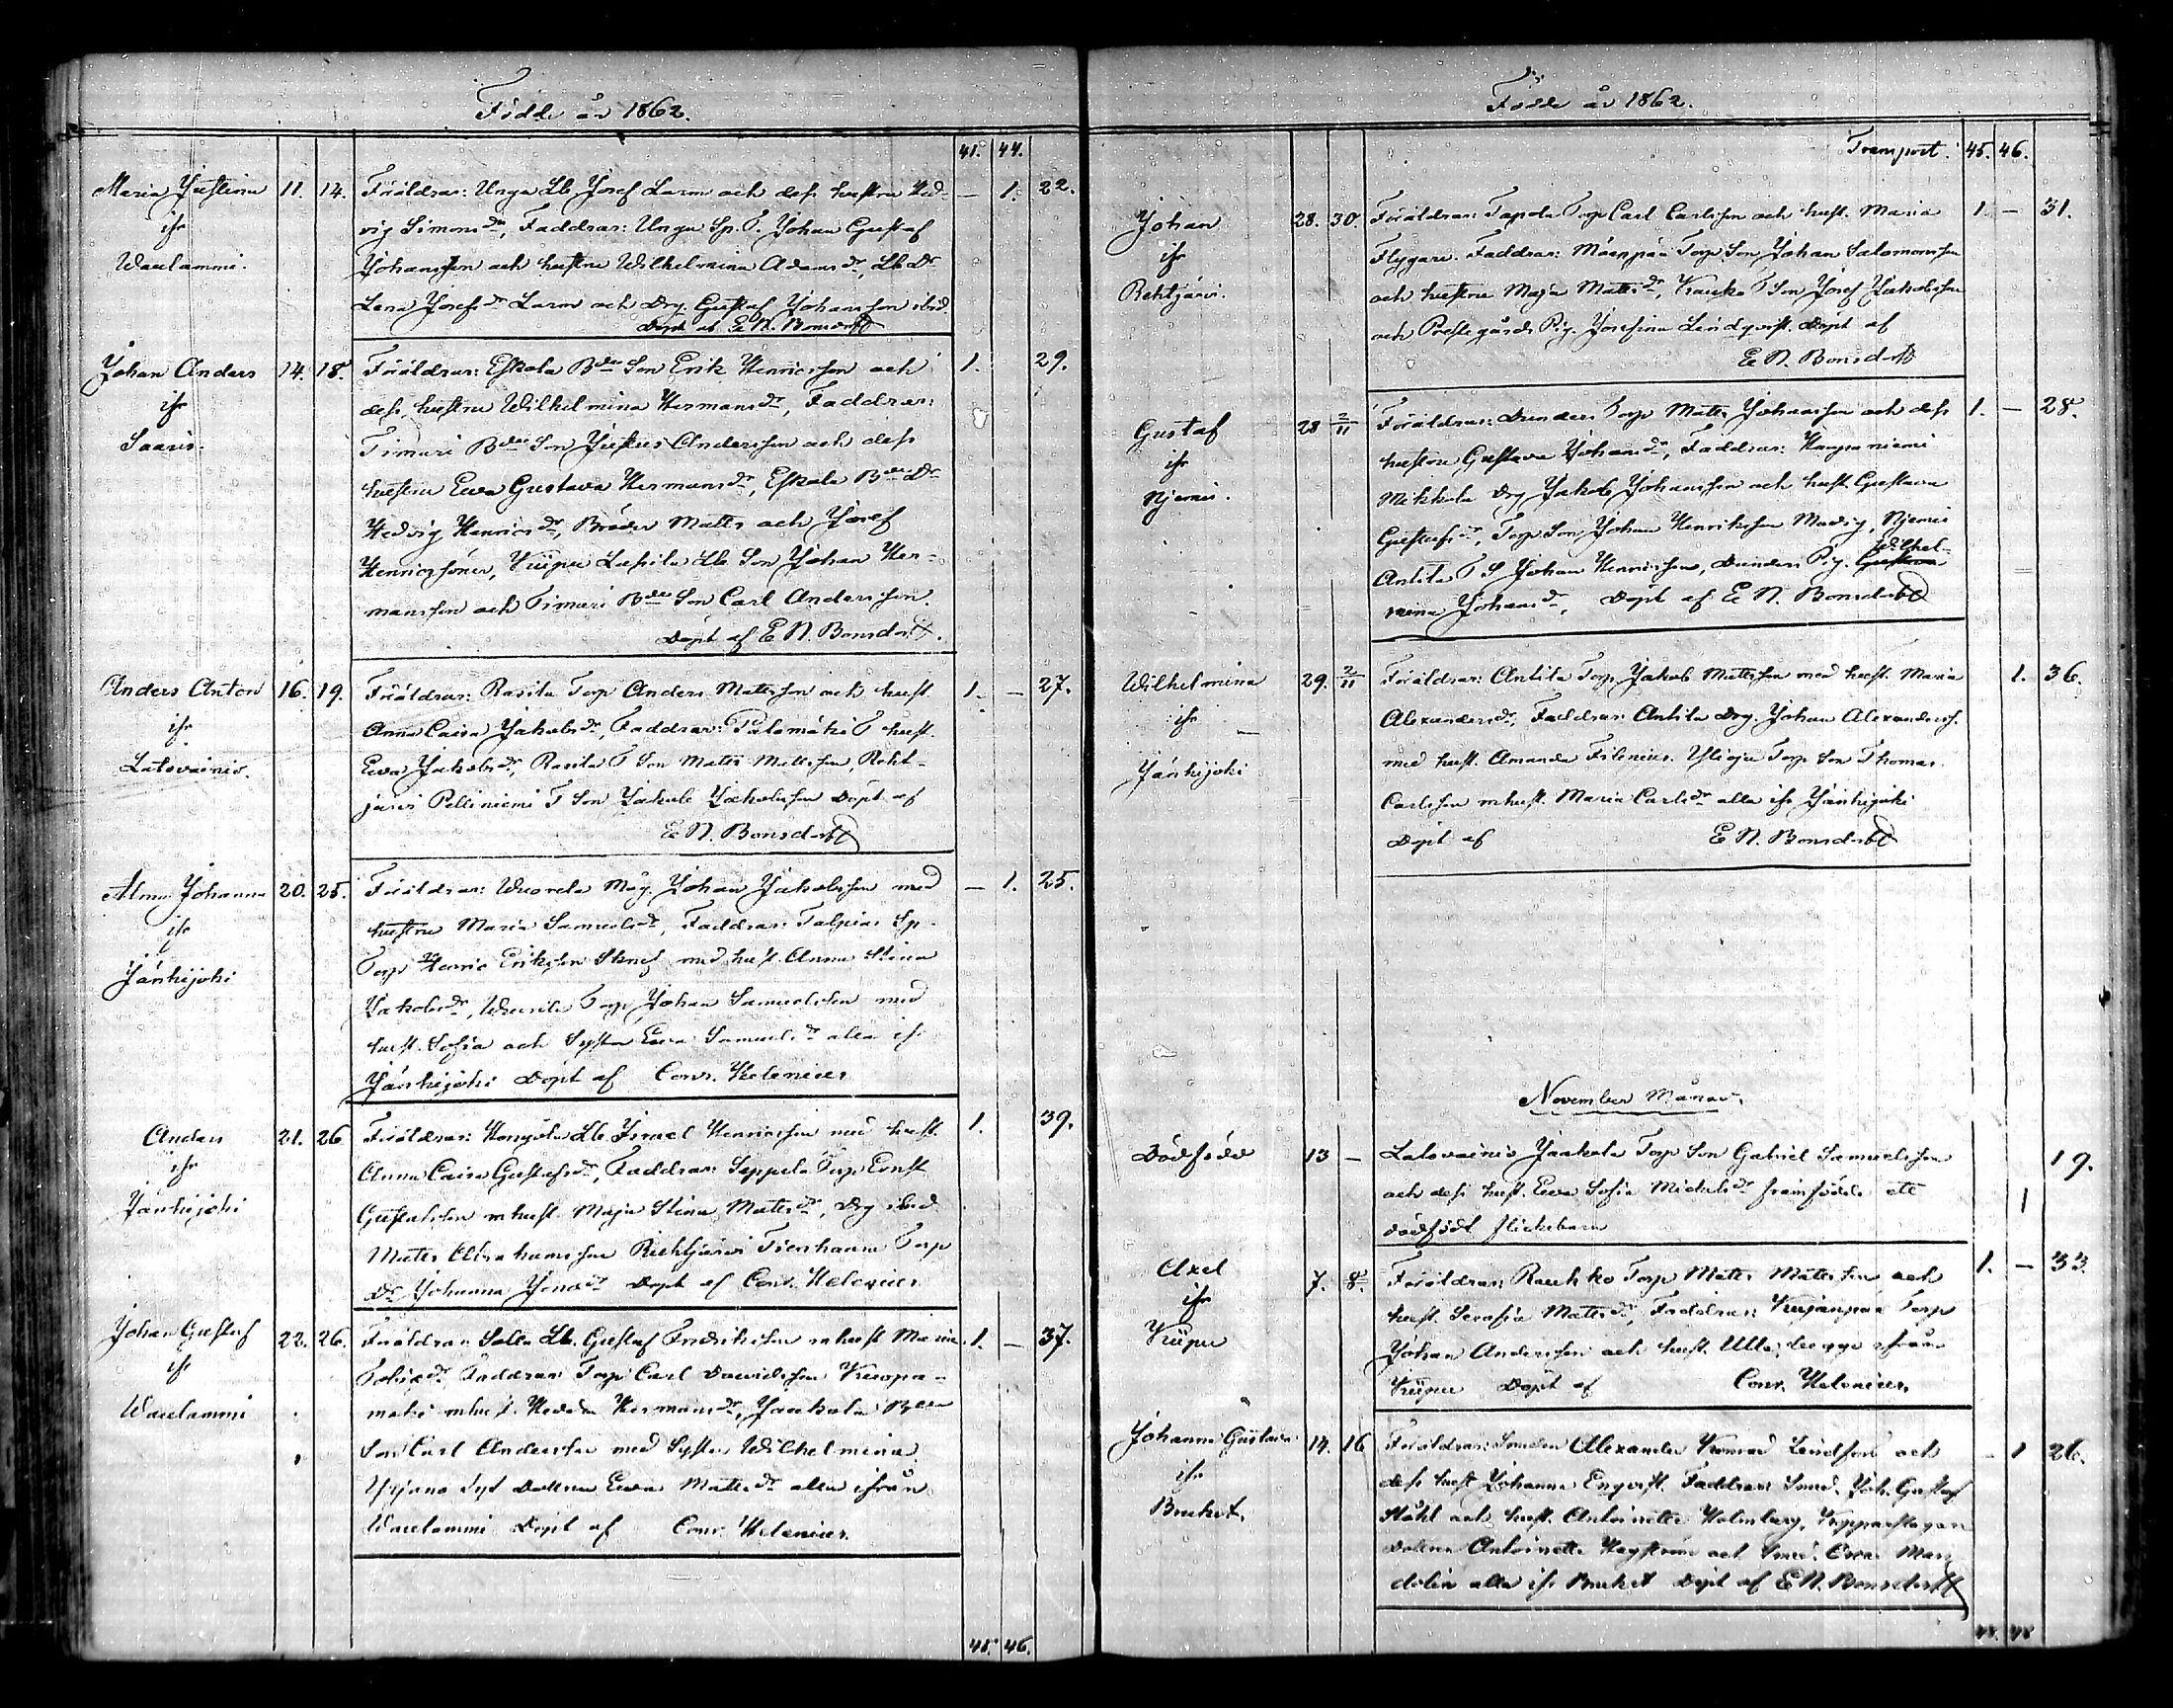 Födde år 1862.
41. 44.
Maria Justina 11. 14. Föräldrar: Unga Lb Josef Larm och dess hustru Hed- — 1. 22.
ifr vig Simonsdr, Faddrar: Unga Sp. T. Johan Gustaf
Waulammi. Johansson och hustru Wilhelmina Adamsdr, Lb Dr
Lena Josefsdr Larm och Drg Gustaf Johansson ibid.
Döpt af E N. Bonsdorff
Johan Anders 14. 18. Föräldrar: Eskola Bde Son Erik Henricsson och 1. 29.
ifr dess hustru Wilhelmina Hermansdr, Faddrar:
Saaris. Timari Bde Son Justus Andersson och dess
hustru Ewa Gustava Hermansdr, Eskola Bde Dr
Hedvig Henricsdr, Bröder Matts och Josef
Henricssöner, Kuipu Lassila Lb Son Johan Her-
mansson och Timari Bde Son Carl Andersson.
Döpt af E N. Bonsdorff.
Anders Anton 16. 19. Föräldrar: Rasila Torp Anders Mattsson och hust. 1. — 27.
ifr Anna Caisa Jakobsdr, Faddrar: Palomäki T hust.
Latovainio. Ewa Jakobsdr, Rasila T Son Matts Mattsson, Reht-
järvi Pelliniemi T Son Jakob Jakobsson Döpt af
E N. Bonsdorff
Alma Johanna 20. 25. Föräldrar: Wuorela Måg. Johan Jakobsson med — 1. 25.
ifr hustru Maria Samuelsdr, Faddrar: Talpias Sp.
Jänhijoki Torp Henric Eriksson med hust. Anna Stina
Jakobsdr, Torp Johan Samuelsson med
hust. Sofia och Syster Ewa Samuelsdr alla ifr
Jänhijoki Döpt af Conr. Helenius
Anders 21. 26. Föräldrar: Lb. Israel Henricsson med hust. 1. 39.
ifr Anna Caisa Gustafsdr, Faddrar: Seppela Torp Ernst
Jänhijoki Gustafsson m hust. Maja Stina Mattsdr, Drg ibid
Matts Abrahamsson Riehtjärvi Torp
Dr Johanna Döpt af Conr. Helenius
Johan Gustaf 22. 26. Föräldrar Lb. Gustaf Fredriksson m hust Maria 1. — 37.
ifr Faddrar: Torp Carl Davidsson Kuopa-
Waulammi mäki m hust. Hedda Hermansdr, Jaakola Bde
Son Carl Andersson med Syster Wilhelmina
Yrjana Dottern Ewa Mattsdr alla ifrån
Waulammi Döpt af Conr. Helenius.
45. 46.
Födde år 1862.
Transport. 45. 46.
Johan 28. 30. Föräldrar: Tapola Torp Carl Carlsson och hust. Maria 1. — 31.
ifr Flygare. Faddrar: Mäenpää Torp Son Johan Salomonsson
Rehtjärvi. och hustru Maja Mattsdr, T Son Josef Jakobsson
och Prestgårds Pig. Josefina Lindqvist. Döpt af
E N. Bonsdorff
Gustaf 28 2/11 Föräldrar: Dunders Torp Matts Johansson och dess 1. — 28.
ifr hustru Gustava Johansdr, Faddrar: Haapaniemi
Njemis. Mikkola Drg Jakob Johansson och hust. Gustava
Gustafsdr, Torp Son Johan Henriksson Madig, Njemis
Wilhel-
Antila T S Johan Henricsson, Dunders Pig. Gustava
mina Johansdr, Döpt af E N. Bonsdorff
Wilhelmina 29. 2/11 Föräldrar: Antila Torp Jakob Mattsson med hust. Maria 1. 36.
ifr Alexandersdr, Faddrar: Antila Drg Johan Alexanderss.
Jänhijoki med hust. Amanda Filenius. Torp Son Thomas
Carlsson m hust. Maria Carlsdr alla ifr Jänhijoki
Döpt af E N. Bonsdorff
November Månad.
Dödfödd 13 — Latovainio Jaakola Torp Son Gabriel Samuelsson 19.
och dess hust. Ewa Sofia Mickelsdr framfödde ett 1
dödfödt flickebarn
Axel 7. 8. Föräldrar: Rauhko Torp Matts Mattsson och 1. — 33.
ifr hust. Serafia Mattsdr, Faddrar: Kujanpää Torp
Kuipu Johan Andersson och hust. Ulla ifrån
Kuipu Döpt af Conr. Helenius.
Johanna Gustava 14. 16 Föräldrar: Smeden Alexander Konrad Lindfors och — 1 26.
ifr dess hust Johanna Engvist. Faddrar: Smed. Joh. Gustaf
Bruket. Ståhl och hust. Antoinette Holmberg, Kopparslagare
dottern Antoinette Hagström och Smed. Oscar Man-
delin alla ifr Bruket Döpt af E N. Bonsdorff
48. 48